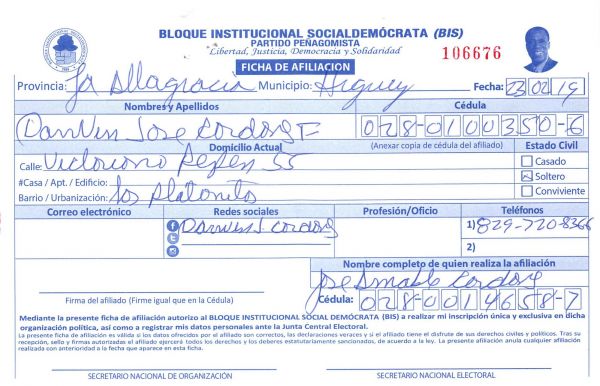 BLOQUE INSTITUCIONAL SOCIALDEMÓCRATA (BIS)
PARTIDO PEÑAGOMISTA
Libertad, Justicia, Democracia y Solidaridad
106676
FICHA DE AFILIACION
Provincia: La Altagracia Municipio: Higuey Fecha: 23/02/19
Nombres y Apellidos Cédula
Jose Cordon 028-0100350-6
Domicilio Actual (Anexar copia de cédula del afiliado) Estado Civil
Calle: 55 Casado
#Casa / Apt. / Edificio: Soltero
Barrio / Urbanización: Los Platanitos Conviviente
Correo electrónico Redes sociales Profesión/Oficio Teléfonos
1) 829-720-8366
2)
Nombre completo de quien realiza la afiliación
Jose
Firma del afiliado (Firme igual que en la Cédula) Cédula: 028-0014658-7
Mediante la presente ficha de afiliación autorizo al BLOQUE INSTITUCIONAL SOCIAL DEMÓCRATA (BIS) a realizar mi inscripción única y exclusiva en dicha
organización política, así como a registrar mis datos personales ante la Junta Central Electoral.
La presente ficha de afiliación es válida si los datos ofrecidos por el afiliado son correctos, las declaraciones veraces y si el afiliado tiene el disfrute de sus derechos civiles y políticos. Tras su
recepción, sello y firmas autorizadas el afiliado ejercerá todos los derechos y los deberes estatutariamente sancionados, de acuerdo a la ley. La presente afiliación anula cualquier afiliación
realizada con anterioridad a la fecha que aparece en esta ficha.
SECRETARIO NACIONAL DE ORGANIZACIÓN SECRETARIO NACIONAL ELECTORAL